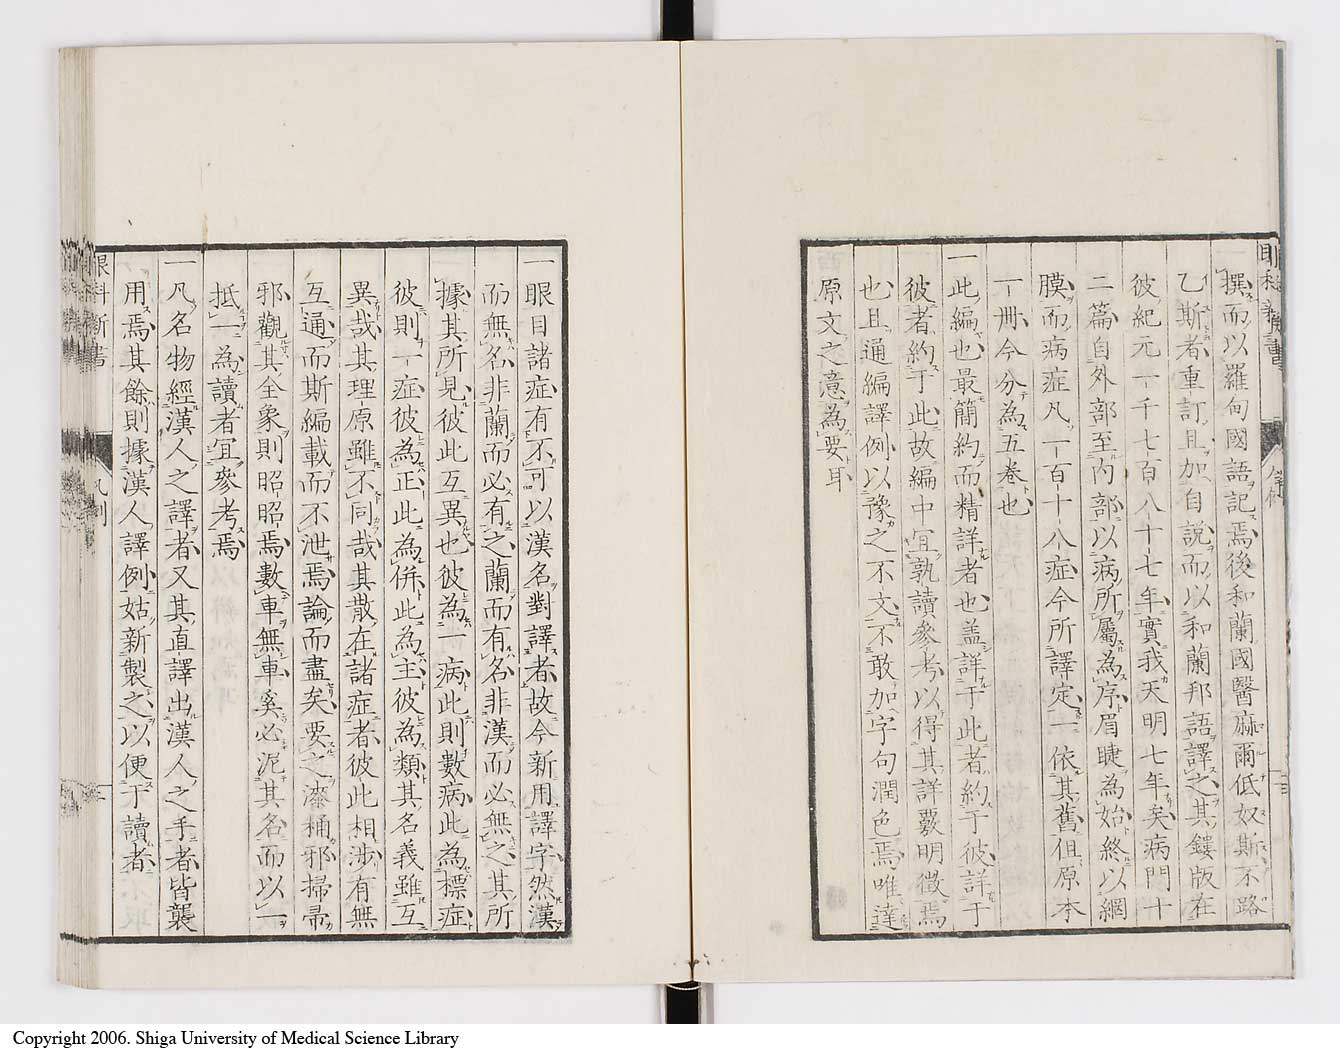 撰而以羅甸國語記焉後和蘭國醫麻爾低奴斯不路
乙斯者重訂且加自説而以和蘭邦語譯之其鏤版在
彼紀元一千七百八十七年實我天明七年矣病門十
二篇自外部至内部以病所屬為序眉睫為始終以網
膜而病症凡一百十八症今所譯定一依其舊但原本
一冊今分為五卷也
一此編也最簡約而精詳者也盖詳于此者約于彼詳于
彼者約于此故編中宜孰讀參考以得其詳覈明徵焉
也且通編譯例以豫之不文不敢加字句潤色焉唯達
原文之意為要耳
一眼目諸症有不可以漢名對譯者故今新用譯字然漢
而無名非蘭而必有之蘭而有名非漢而必無之其所
據其所見彼此互異也彼為一病此則數病此為標症
彼則一症彼為正此為併此為主彼為類其名義雖互
異哉其理原雖不同哉其散在諸症者彼此相渉有無
互通而斯編載而不泄焉論而盡矣要之漆桶邪掃帚
邪觀其全象則昭昭焉數車無車奚必泥其名而以一
抵一為讀者宜參考焉
一凡名物經漢人之譯者又其直譯出漢人之手者皆襲
用焉其餘則據漢人譯例姑新製之以便于讀者
眼科新書
凡例